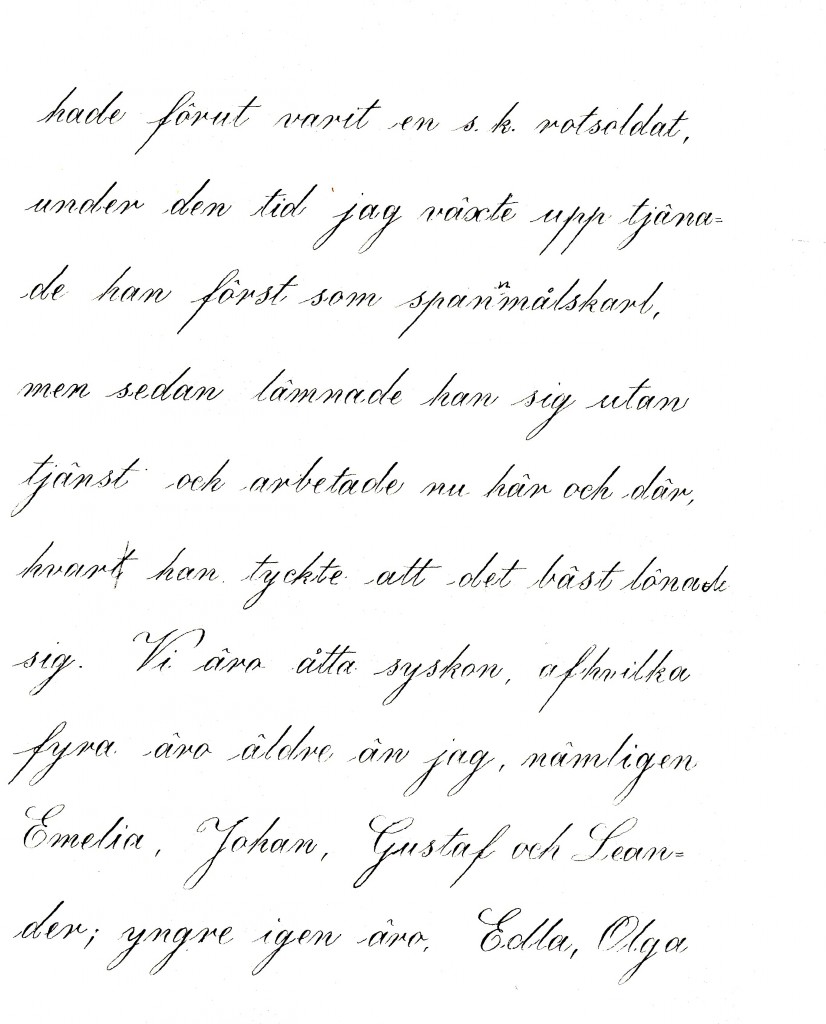 hade förut varit en s.k. rotsoldat,
under den tid jag växte upp tjäna=
de han först som spannmålskarl,
men sedan lämnade han sig utan
tjänst och arbetade nu här och där,
hvart han tyckte att det bäst lönade
sig. Vi äro åtta syskon, afhvilka
fyra äro äldre än jag, nämligen
Emelia, Johan, Gustaf och Lean=
der; yngre igen äro, Edla, Olga